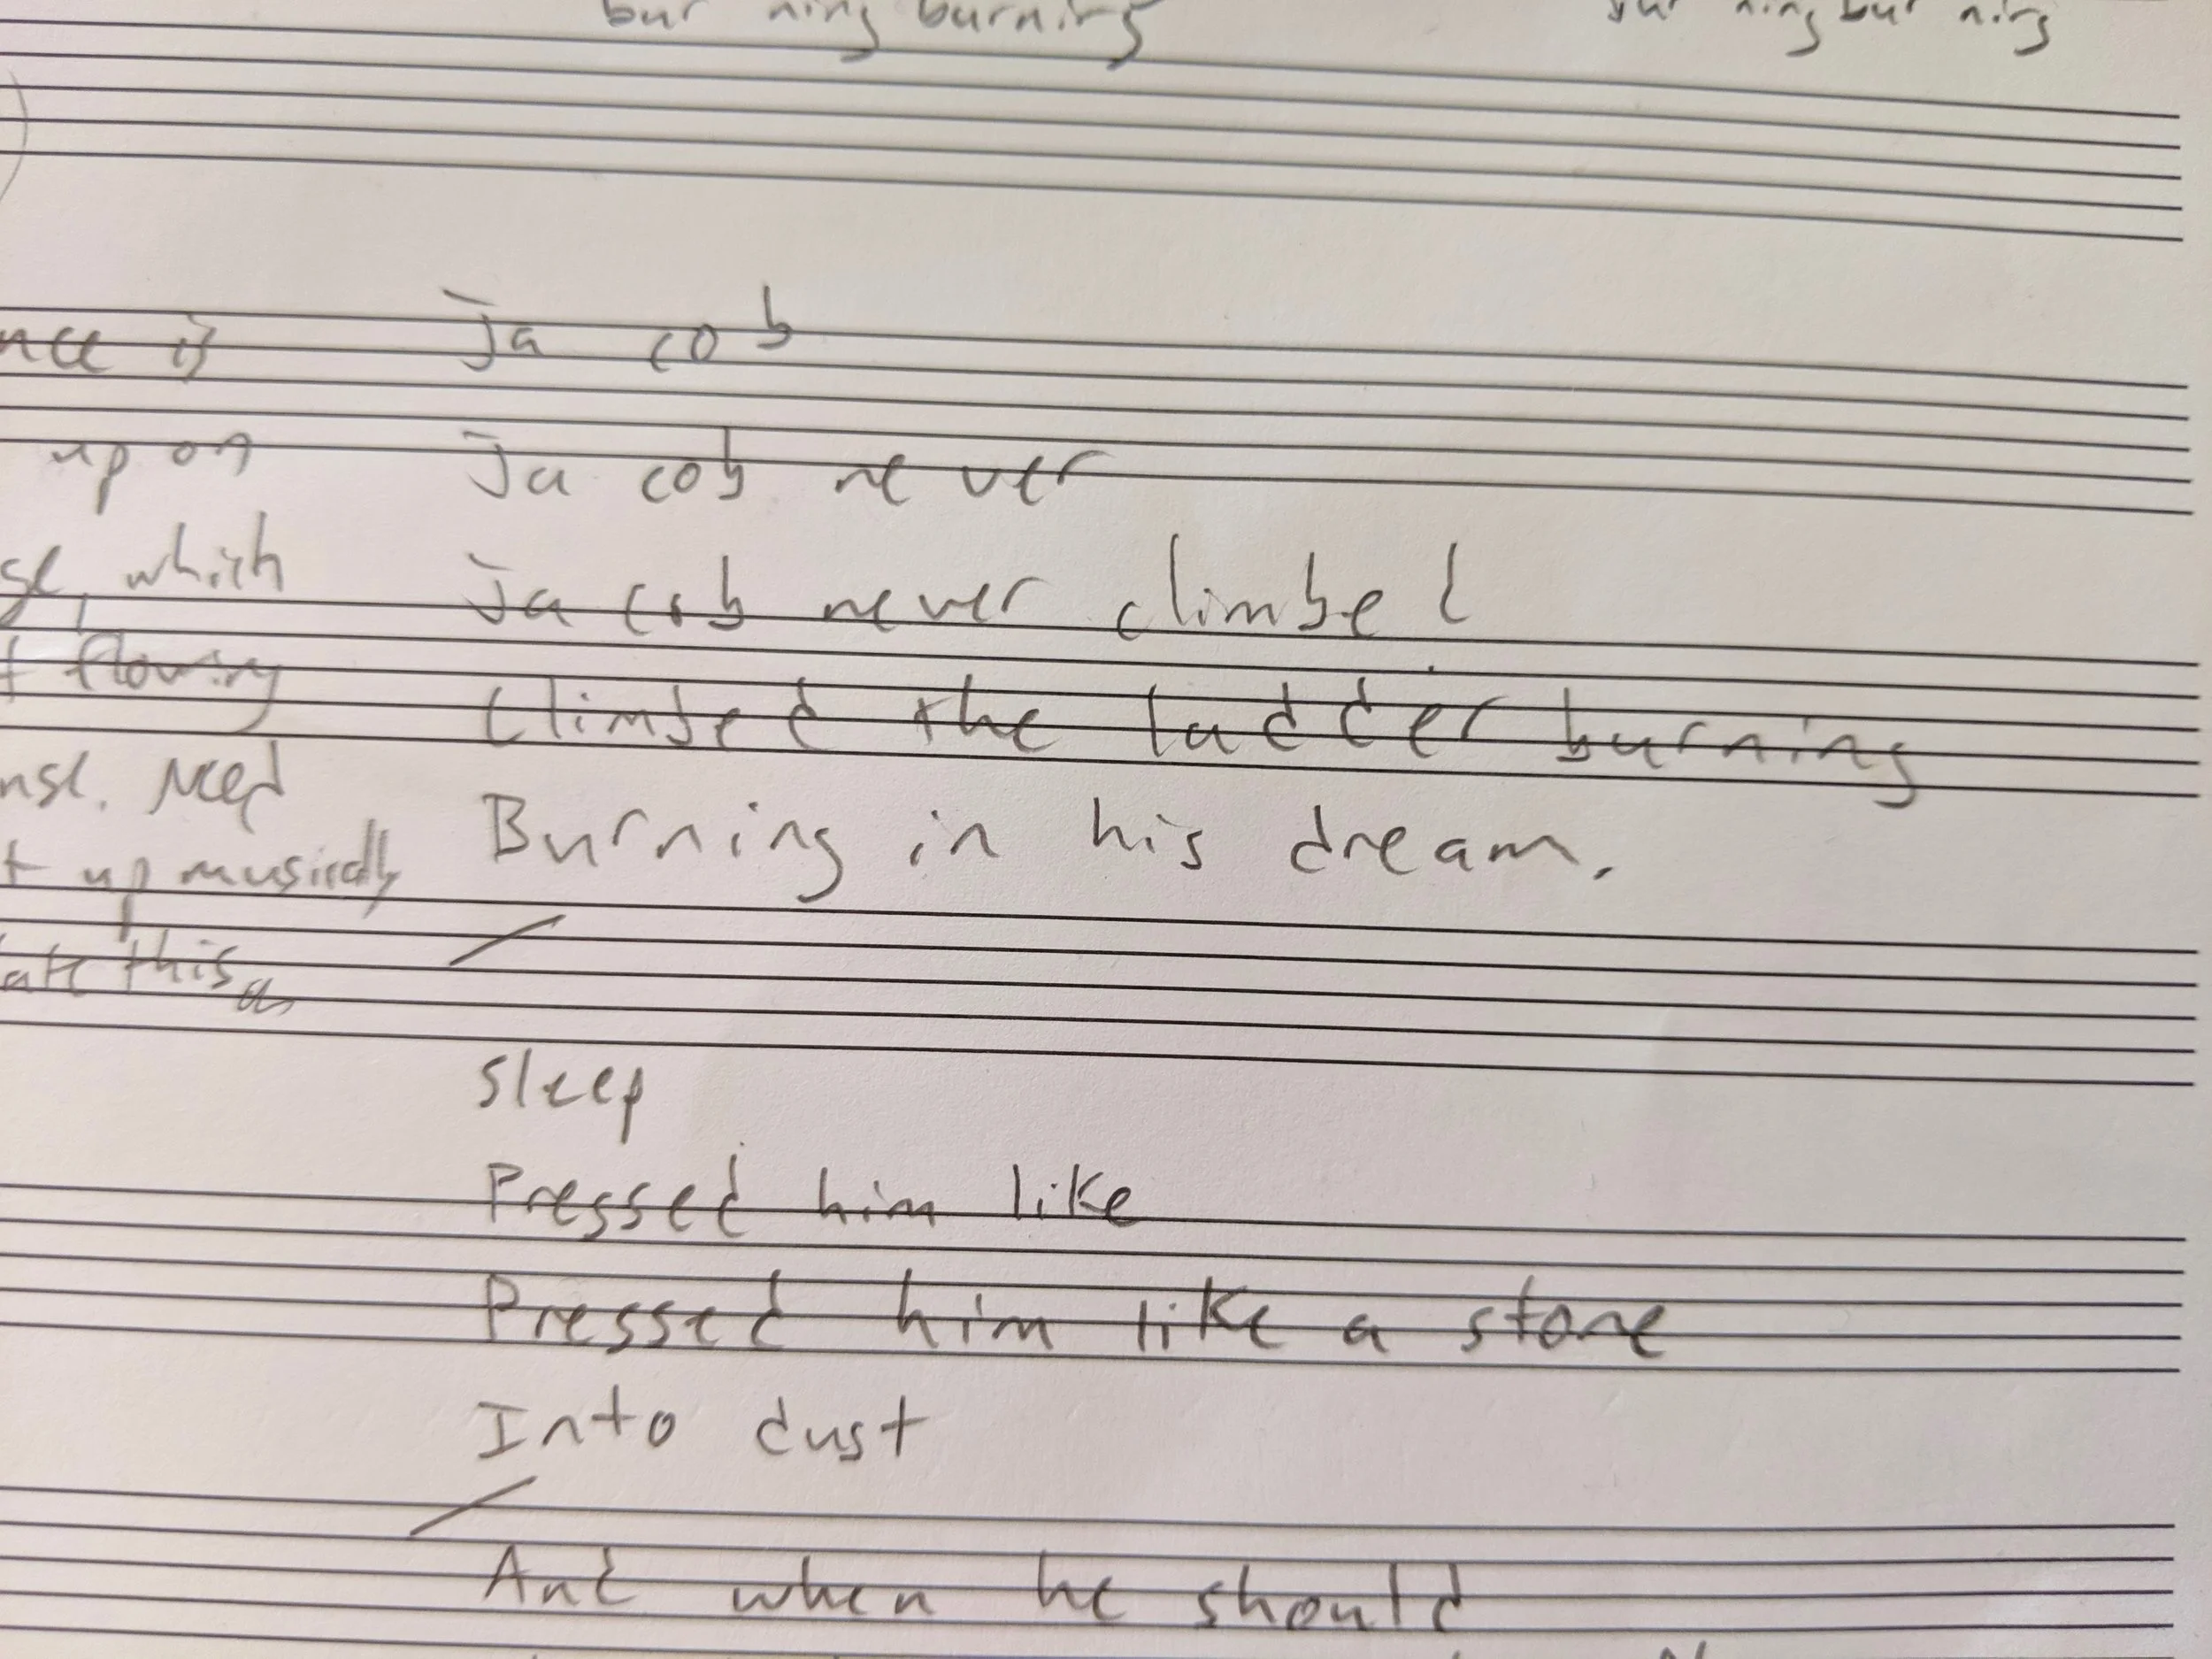 bur ning burning ning bur ning
is ja cob
upon ja cob ne ver
which ja cob never climbed
flowing climbed the ladder burning
Need Burning in his dream.
up musically
this
sleep
Pressed him like
Pressed him like a stone
Into dust
And when he should